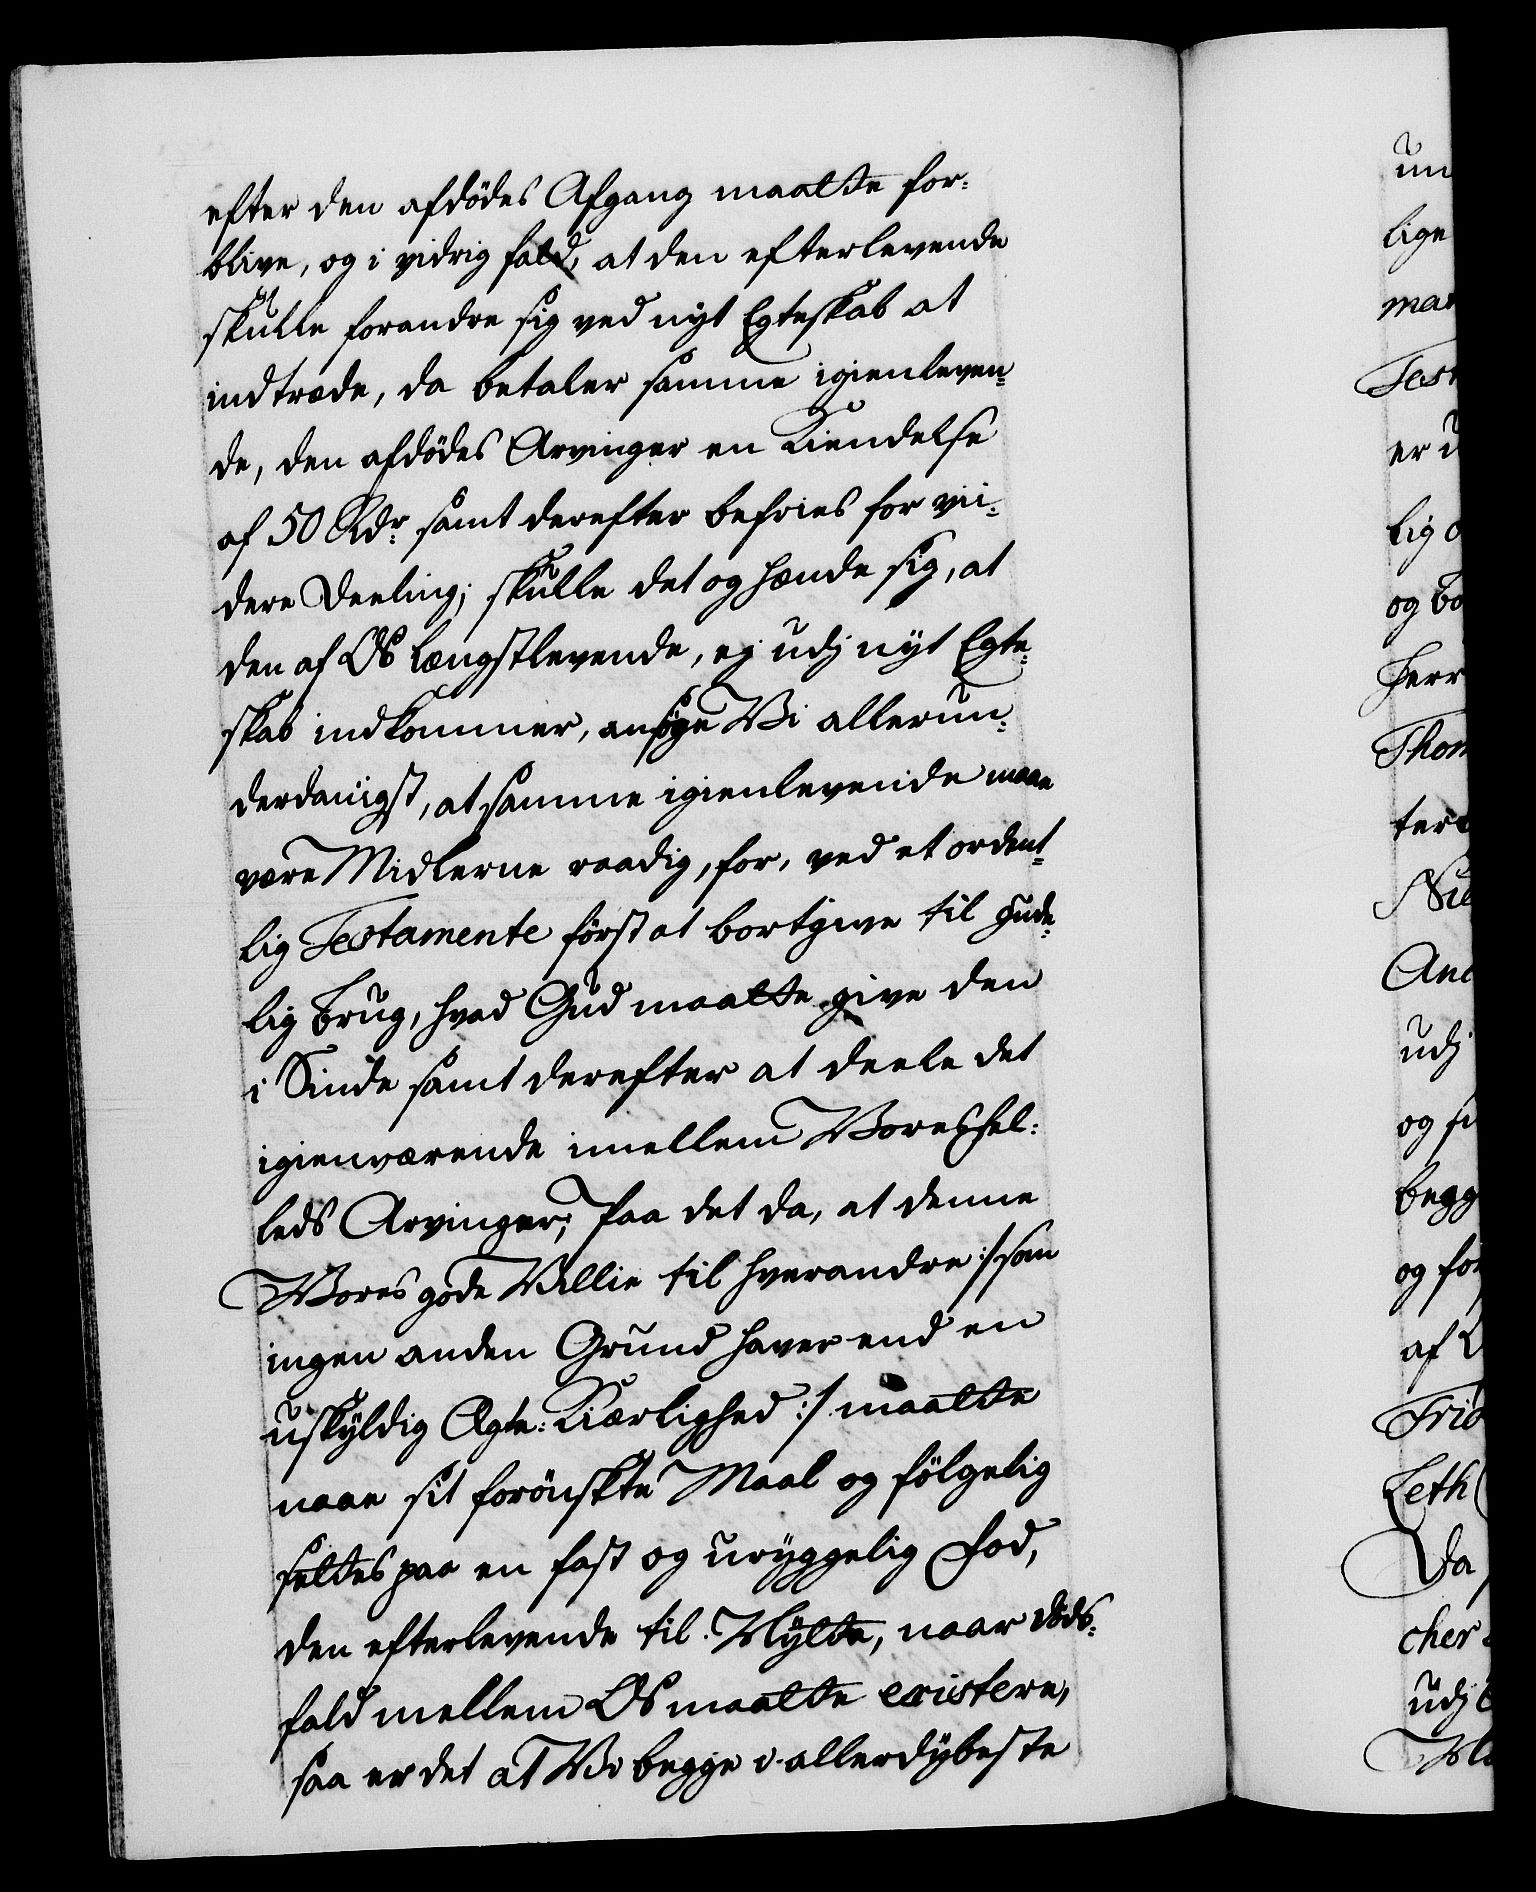 efter den afdödes Afgang maatte for-
blive, og i vidrig fald, at den efterlevende
skulle forandre sig ved nyt Egteskab at
indtræde, da betaler samme igienleven-
de, den afdödes Arvinger en Kiendelse
af 50 Rdr. samt derefter befries for vii-
dere Deeling; skulle det og hænde sig, at
den af Os længstlevende, ej udj nyt Egte-
skab indkommer, ansøge Vi allerun-
derdanigst, at samme igienlevende maae
være Midlerne raadig, for, ved et ordent-
lig Testamente först at bortgive til Gude-
lig Brug, hvad Gud maatte give den
i Sinde samt derefter at deele det
igienværende imellem Vores Fel-
leds Arvinger; Paa det da, at denne
Vores gode Villie til hverandre :/ som
ingen anden Grund haver end en
uskyldig Ægte-Kiærlighed :/ maatte
naae sit forönskte Maal og fölgelig
settes paa en fast og uryggelig Fod,
den efterlevende til Nytte, naar döds-
fald mellem Os maatte existere,
saa er det at Vi begge i allerdybeste
un
lige
man
Test
er u
lig o
og bo
Herr
Thom
ter
Nie
And
udj
og si
begg
og for
af
Frid
Leth
Da
cher
udj